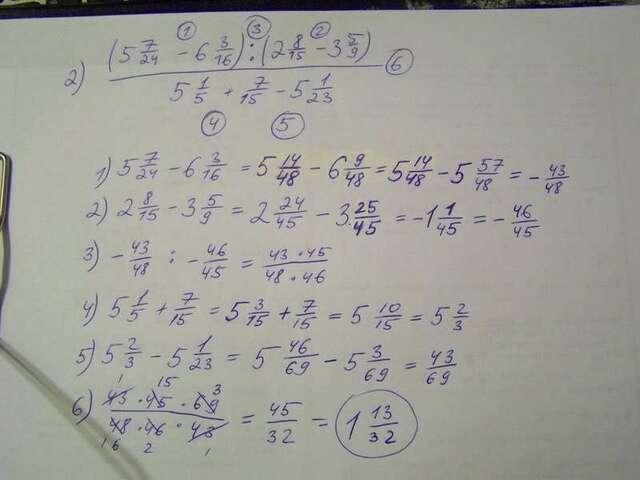 ① ③ ②
2) (5 7/24 - 6 3/16) : (2 8/15 - 3 5/9) ⑥
5 1/5 + 7/15 - 5 1/23
④ ⑤
1) 5 7/24 - 6 3/16 = 5 14/48 - 6 9/48 = 5 14/48 - 5 57/48 = - 43/48
2) 2 8/15 - 3 5/9 = 2 24/45 - 3 25/45 = -1 1/45 = - 46/45
3) - 43/48 : - 46/45 = 43 · 45 / 48 · 46
4) 5 1/5 + 7/15 = 5 3/15 + 7/15 = 5 10/15 = 5 2/3
5) 5 2/3 - 5 1/23 = 5 46/69 - 5 3/69 = 43/69
1 15 3
6) 43 · 45 · 69 / 48 · 46 · 43 = 45/32 = 1 13/32
16 2 1